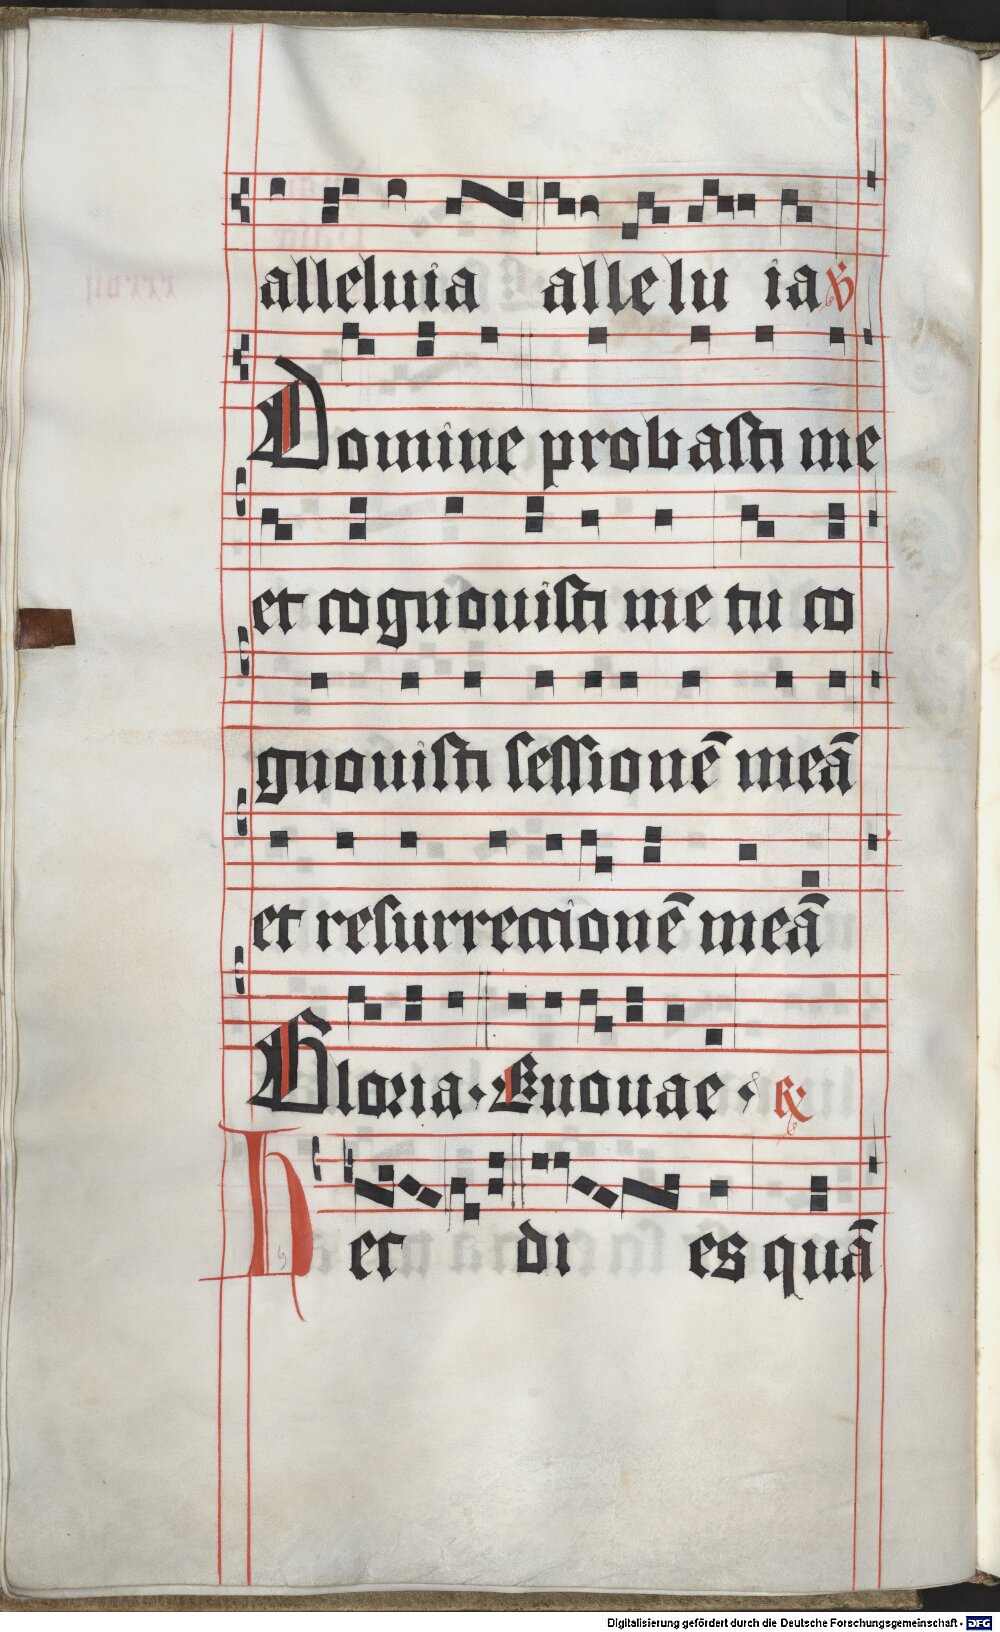 alleluia allelu ia ℣
Domine probasti me
et cognouisti me tu co
gnouisti sessionē meā
et resurrectionē meā
Gloria · Euouae · ℟
Hec di es quā
Digitalisierung gefördert durch die Deutsche Forschungsgemeinschaft - DFG